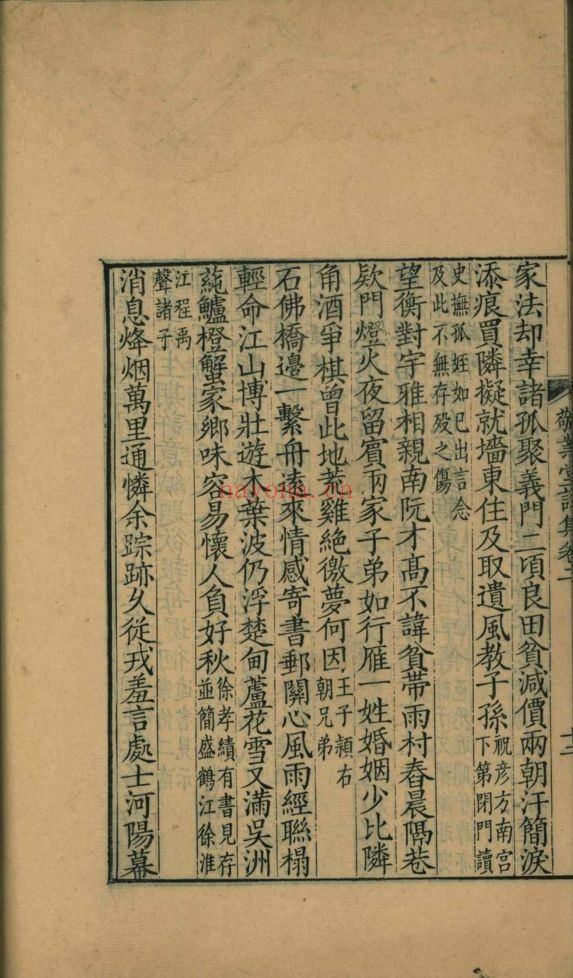 敬業堂詩集卷二
十二
家法却幸諸孤聚義門二頃良田貧減價兩朝汗簡淚
添痕買隣擬就墻東住及取遺風教子孫祝彦方南宫
下第閉門讀
史撫孤姪如已出言念
及此不無存殁之傷
望衡對宇雅相親南阮才髙不諱貧帶雨村舂晨隔巷
欵門燈火夜留賓兩家子弟如行雁一姓婚姻少比隣
角酒爭棋曾此地荒雞絶徼夢何因王子頴右
朝兄弟
石佛橋邊一繫舟遠來情感寄書郵關心風雨經聯榻
輕命江山博壯遊木葉波仍浮楚甸蘆花雪又滿吳洲
蒓鱸橙蟹家鄉味容易懷人負好秋徐孝績有書見存
並簡盛鶴江徐淮
江程禹
聲諸子
消息烽烟萬里通憐余踪跡久從戎羞言處士河陽幕
nayona.cn